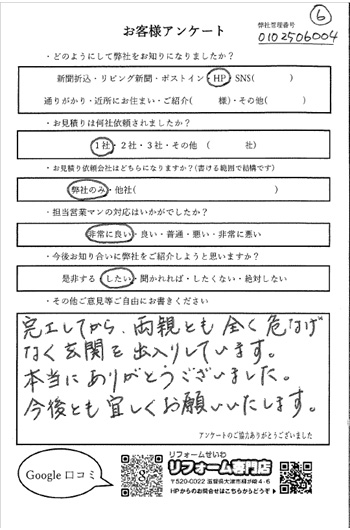 ⑥
お客様アンケート
弊社管理番号
0102506004
・どのようにして弊社をお知りになりましたか？
新聞折込・リビング新聞・ポストイン・HP・SNS( )
通りがかり・近所にお住まい・ご紹介( 様)・その他( )
・お見積りは何社依頼されましたか？
1社・2社・3社・その他 ( 社)
・お見積り依頼会社はどちらになりますか？(書ける範囲で結構です)
弊社のみ・他社( )
・担当営業マンの対応はいかがでしたか？
非常に良い・良い・普通・悪い・非常に悪い
・今後お知り合いに弊社をご紹介しようと思いますか？
是非する・したい・聞かれれば・したくない・絶対しない
・その他ご意見等ご自由にお書きください
完工してから、両親とも全く危なげ
なく玄関を出入りしています。
本当にありがとうございました。
今後とも宜しくお願いいたします。
アンケートのご協力ありがとうございました
Google 口コミ
リフォームせいわ
リフォーム専門店
〒520-0022 滋賀県大津市柳が崎4-6
HPからのお問合せはこちらからどうぞ